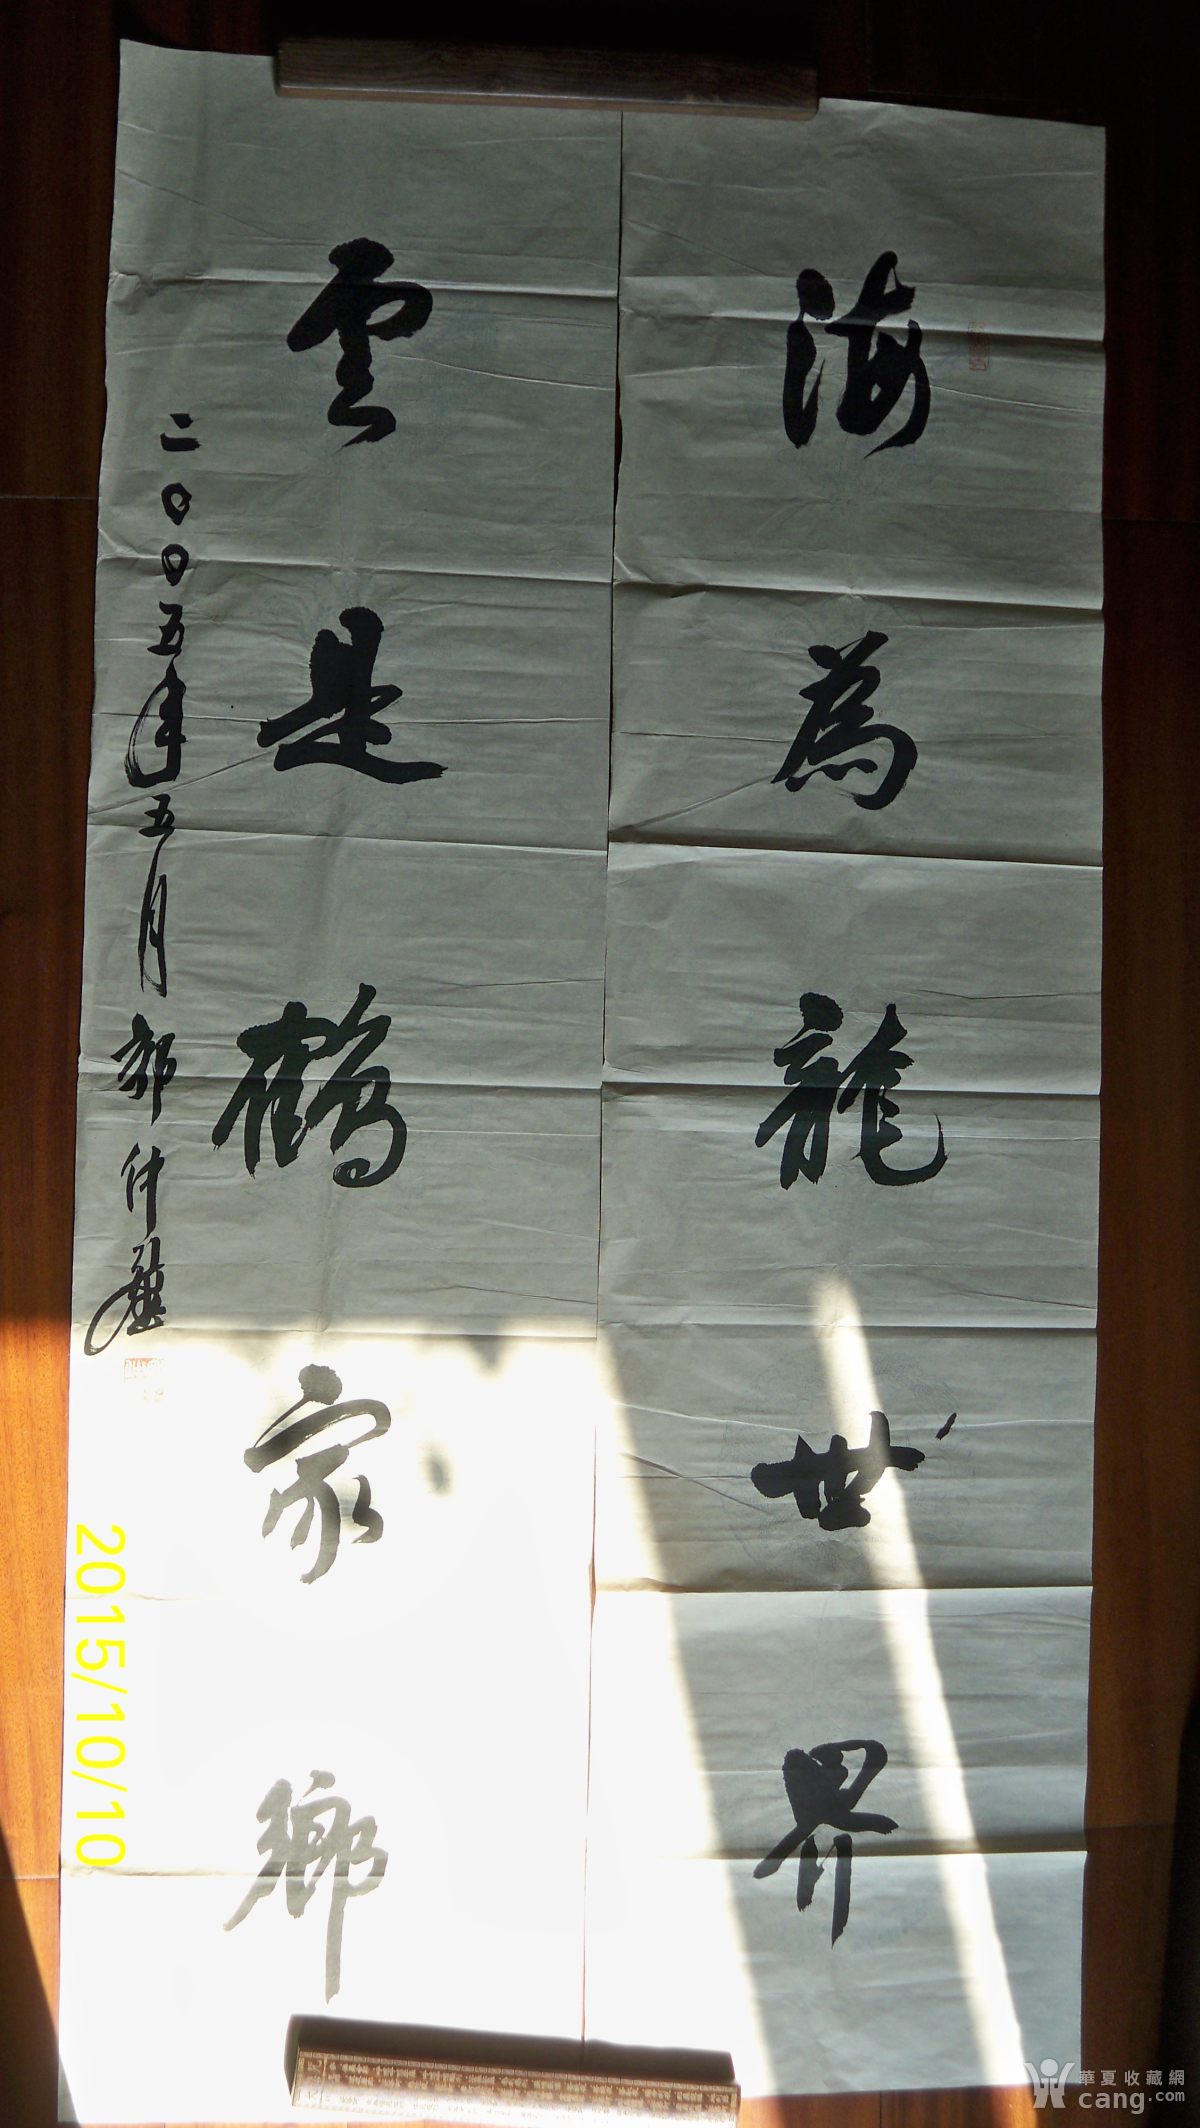 海為龍世界
雲是鶴家鄉
二〇〇五年五月
郭仲
2015/10/10
華夏收藏網
cang.com